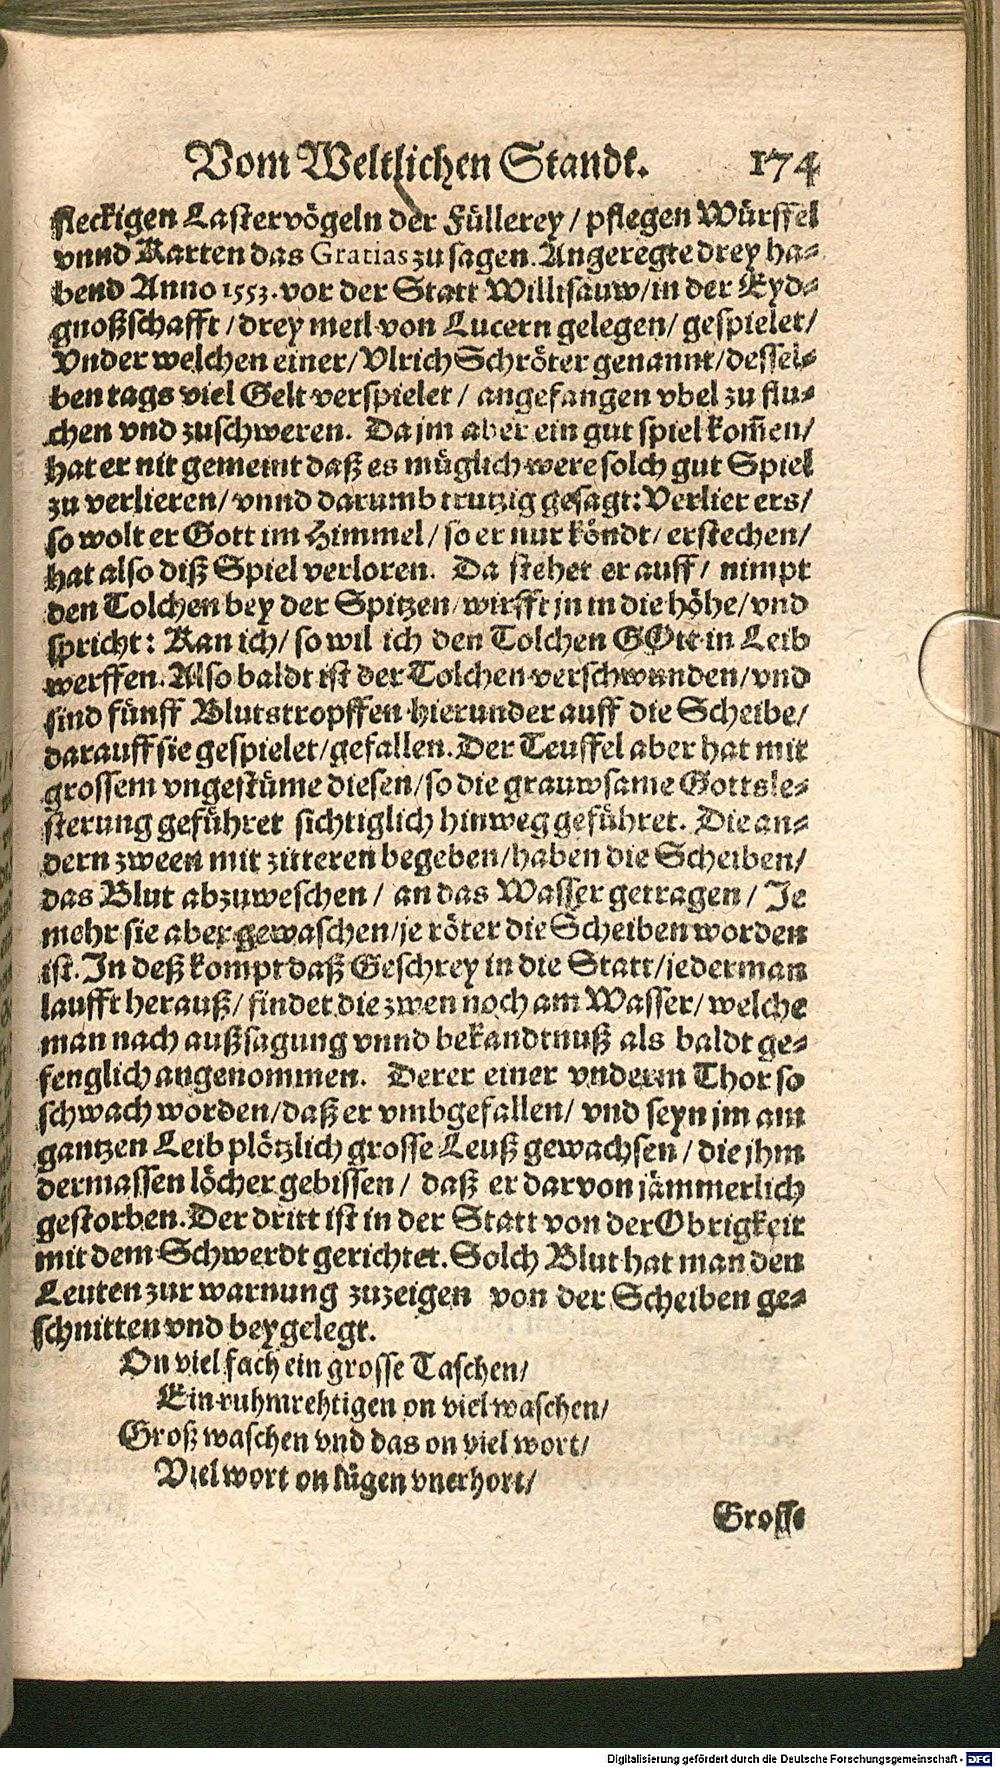 Vom Weltlichen Standt. 174
fleckigen Lastervögeln der Füllerey / pflegen Würffel
vnnd Karten das Gratias zu sagen. Angeregte drey ha-
bend Anno 1553. vor der Statt Willisauw / in der Eyd-
gnoßschafft / drey meil von Lucern gelegen / gespielet /
Vnder welchen einer / Vlrich Schröter genannt / dessel-
ben tags viel Gelt verspielet / angefangen vbel zu flu-
chen vnd zuschweren. Da jm aber ein gut spiel kom̃en /
hat er nit gemeint daß es müglich were solch gut Spiel
zu verlieren / vnnd darumb trutzig gesagt: Verlier ers /
so wolt er Gott im Himmel / so er nur köndt / erstechen /
hat also diß Spiel verloren. Da stehet er auff / nimpt
den Tolchen bey der Spitzen / wirfft jn in die höhe / vnd
spricht: Kan ich / so wil ich den Tolchen GOtt in Leib
werffen. Also baldt ist der Tolchen verschwunden / vnd
sind fünff Blutstropffen hierunder auff die Scheibe /
darauff sie gespielet / gefallen. Der Teuffel aber hat mit
grossem vngestüme diesen / so die grauwsame Gottsle-
sterung geführet sichtiglich hinweg geführet. Die an-
dern zween mit zitteren begeben / haben die Scheiben /
das Blut abzuweschen / an das Wasser getragen / Je
mehr sie aber gewaschen / je röter die Scheiben worden
ist. In deß kompt daß Geschrey in die Statt / jederman
laufft herauß / findet die zwen noch am Wasser / welche
man nach außsagung vnnd bekandtnuß als baldt ge-
fenglich angenommen. Derer einer vnderm Thor so
schwach worden / daß er vmbgefallen / vnd seyn jm am
gantzen Leib plötzlich grosse Leuß gewachsen / die jhm
dermassen löcher gebissen / daß er darvon jämmerlich
gestorben. Der dritt ist in der Statt von der Obrigkeit
mit dem Schwerdt gerichtet. Solch Blut hat man den
Leuten zur warnung zuzeigen von der Scheiben ge-
schnitten vnd beygelegt.
On viel fach ein grosse Taschen /
Ein ruhmrehtigen on viel waschen /
Groß waschen vnd das on viel wort /
Viel wort on lügen vnerhort /
Grosse
Digitalisierung gefördert durch die Deutsche Forschungsgemeinschaft - DFG